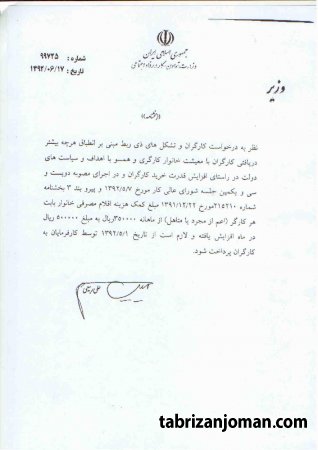 جمهوری اسلامی ایران
وزارت تعاون، کار و رفاه اجتماعی
شماره : ۹۹۷۳۵
تاریخ : ۱۳۹۲/۰۶/۱۷
وزیر
«بخشنامه»
نظر به درخواست کارگران و تشکل های ذی ربط مبنی بر انطباق هرچه بیشتر
دریافتی کارگران با معیشت خانوار کارگری و همسو با اهداف و سیاست های
دولت در راستای افزایش قدرت خرید کارگران و در اجرای مصوبه دویست و
سی و یکمین جلسه شورای عالی کار مورخ ۱۳۹۲/۵/۷ و پیرو بند ۳ بخشنامه
شماره ۲۱۵۲۱۰مورخ ۱۳۹۱/۱۲/۲۲ مبلغ کمک هزینه اقلام مصرفی خانوار بابت
هر کارگر (اعم از مجرد یا متاهل) از ماهانه ۳۵۰۰۰۰ریال به مبلغ ۵۰۰۰۰۰ ریال
در ماه افزایش یافته و لازم است از تاریخ ۱۳۹۲/۵/۱ توسط کارفرمایان به
کارگران پرداخت شود.
tabrizanjoman.com